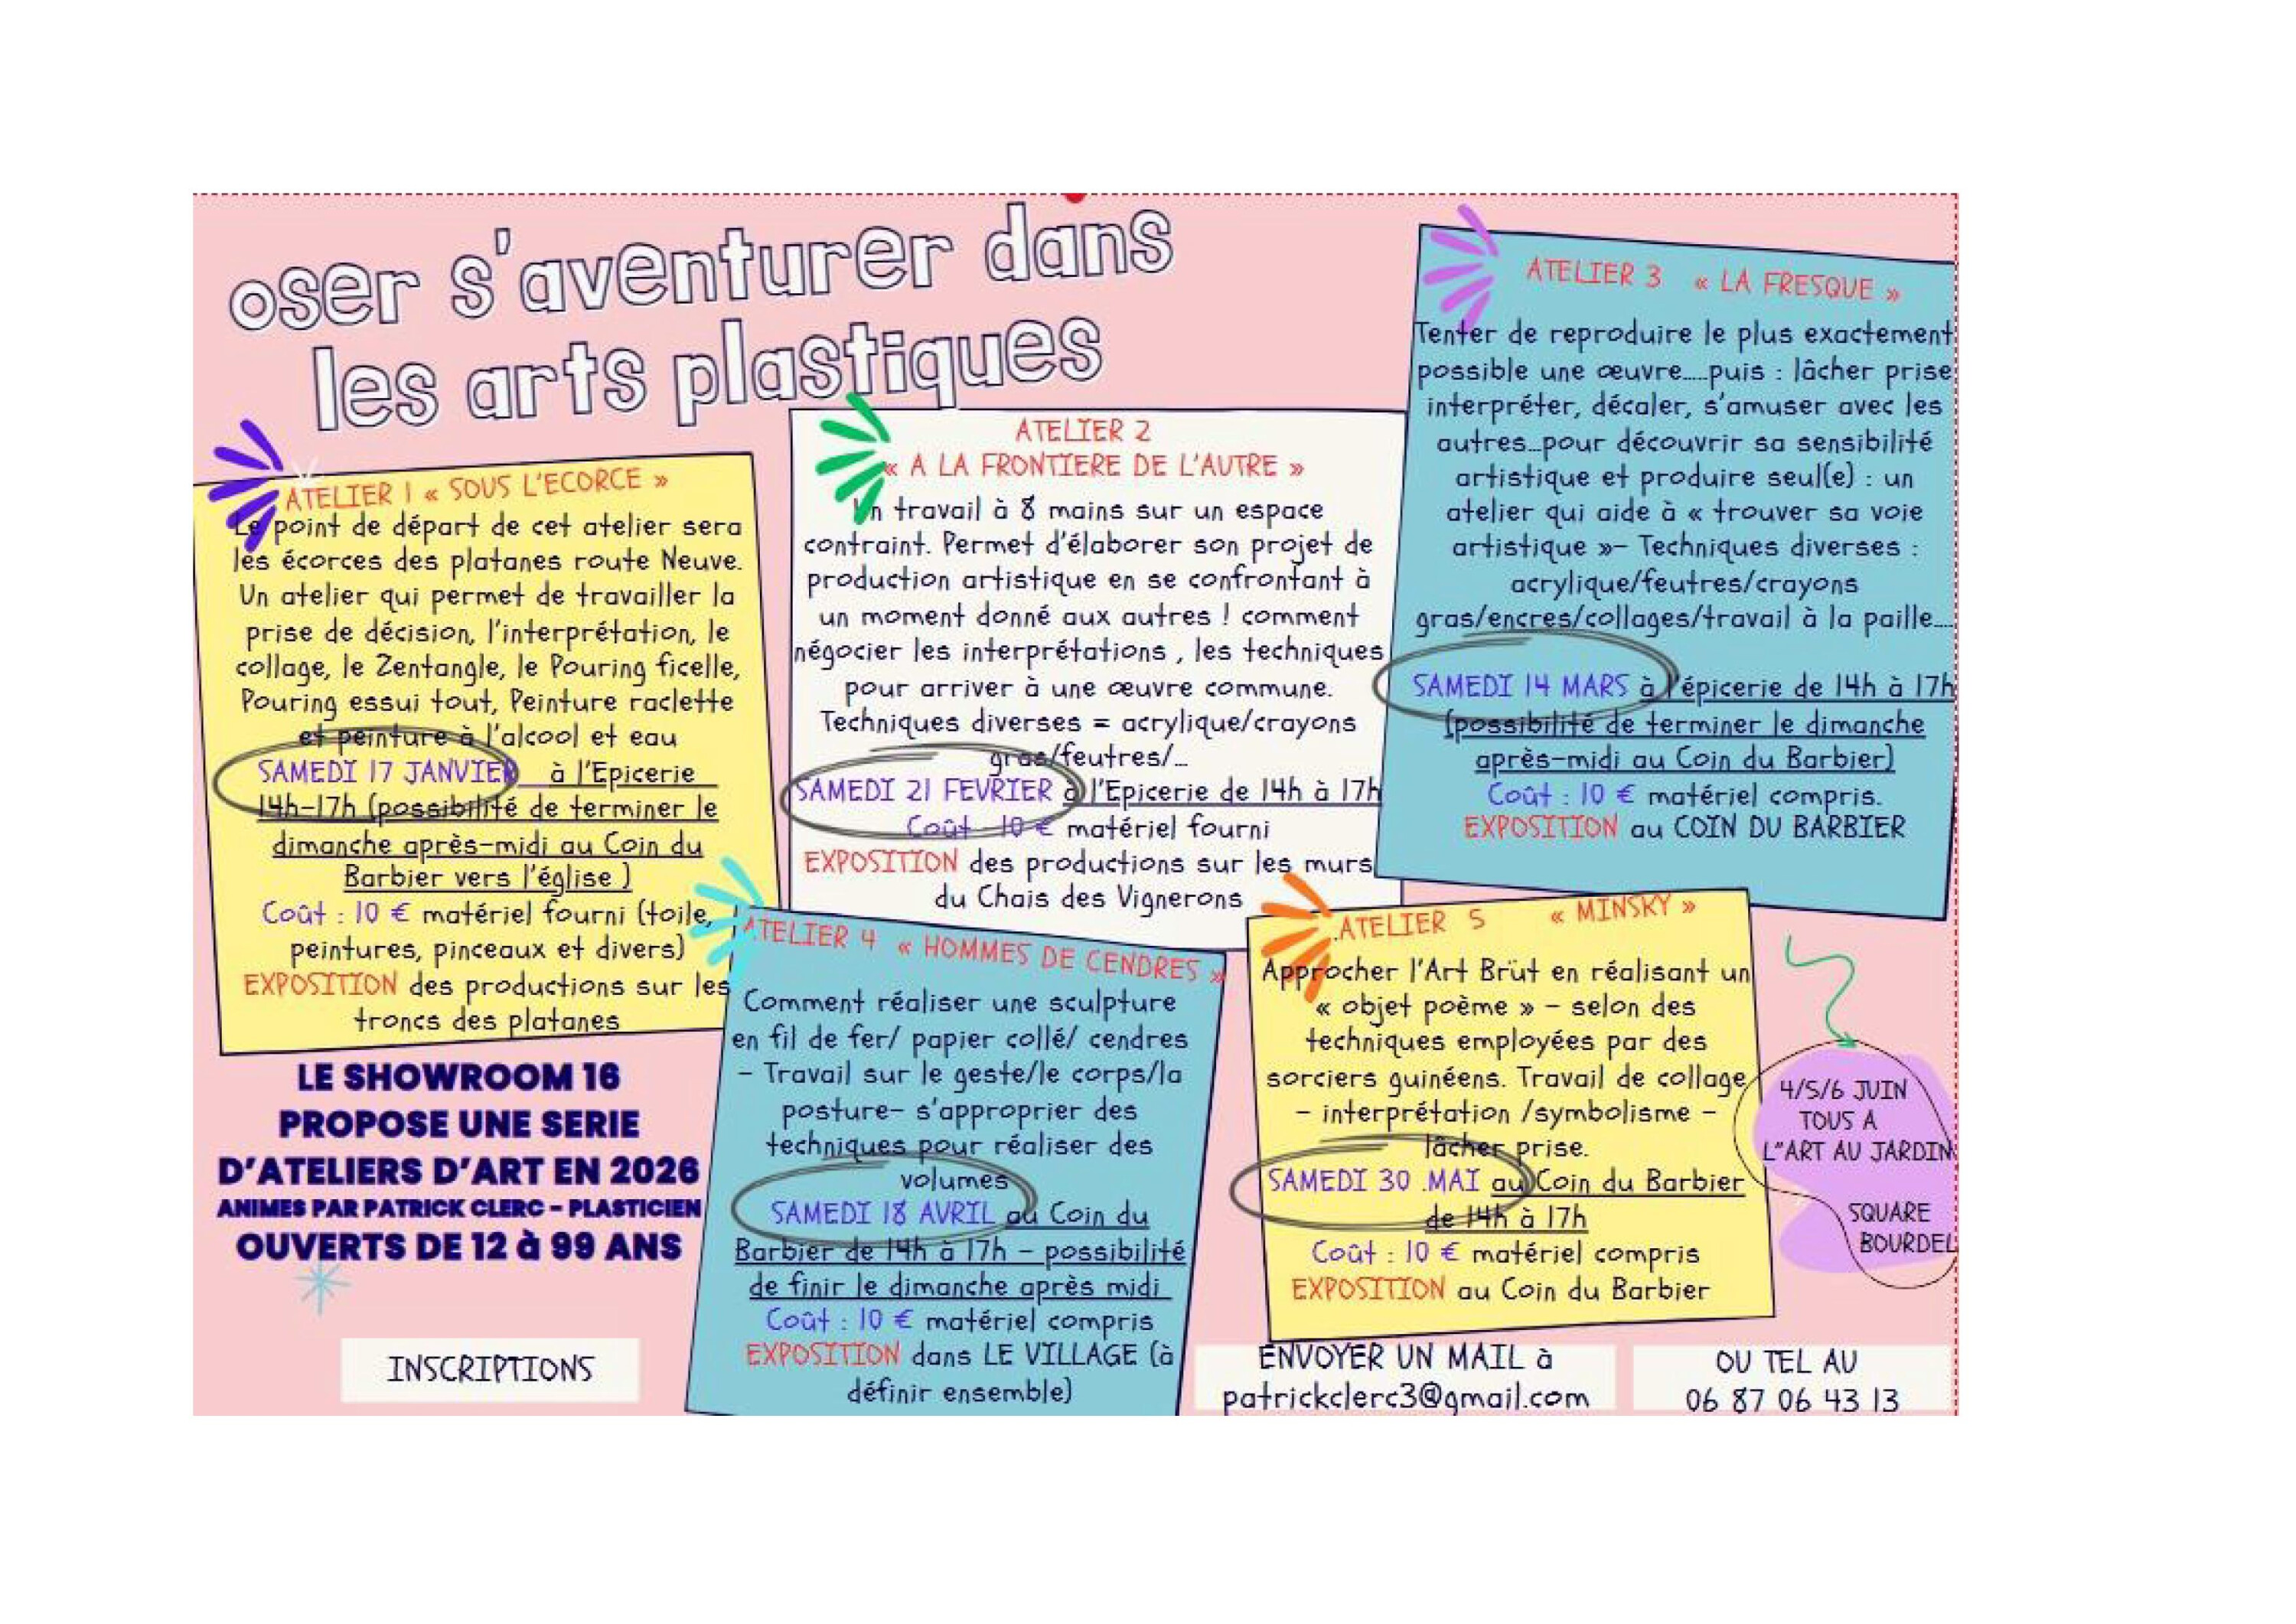 oser s'aventurer dans
les arts plastiques
ATELIER 1 « SOUS L'ECORCE »
Le point de départ de cet atelier sera
les écorces des platanes route Neuve.
Un atelier qui permet de travailler la
prise de décision, l'interprétation, le
collage, le Zentangle, le Pouring ficelle,
Pouring essui tout, Peinture raclette
et peinture à l'alcool et eau
SAMEDI 17 JANVIER à l'Epicerie
14h-17h (possibilité de terminer le
dimanche après-midi au Coin du
Barbier vers l'église )
Coût : 10 € matériel fourni (toile,
peintures, pinceaux et divers)
EXPOSITION des productions sur les
troncs des platanes
ATELIER 2
« A LA FRONTIERE DE L'AUTRE »
Un travail à 8 mains sur un espace
contraint. Permet d'élaborer son projet de
production artistique en se confrontant à
un moment donné aux autres ! comment
négocier les interprétations , les techniques
pour arriver à une œuvre commune.
Techniques diverses = acrylique/crayons
gras/feutres/...
SAMEDI 21 FEVRIER à l'Epicerie de 14h à 17h
Coût - 10 € matériel fourni
EXPOSITION des productions sur les murs
du Chais des Vignerons
ATELIER 3 « LA FRESQUE »
Tenter de reproduire le plus exactement
possible une œuvre.....puis : lâcher prise
interpréter, décaler, s'amuser avec les
autres...pour découvrir sa sensibilité
artistique et produire seul(e) : un
atelier qui aide à « trouver sa voie
artistique »- Techniques diverses :
acrylique/feutres/crayons
gras/encres/collages/travail à la paille....
SAMEDI 14 MARS à l'épicerie de 14h à 17h
(possibilité de terminer le dimanche
après-midi au Coin du Barbier)
Coût : 10 € matériel compris.
EXPOSITION au COIN DU BARBIER
ATELIER 4 « HOMMES DE CENDRES »
Comment réaliser une sculpture
en fil de fer/ papier collé/ cendres
- Travail sur le geste/le corps/la
posture- s'approprier des
techniques pour réaliser des
volumes
SAMEDI 18 AVRIL au Coin du
Barbier de 14h à 17h - possibilité
de finir le dimanche après midi
Coût : 10 € matériel compris
EXPOSITION dans LE VILLAGE (à
définir ensemble)
.ATELIER 5 « MINSKY »
Approcher l'Art Brüt en réalisant un
« objet poème » - selon des
techniques employées par des
sorciers guinéens. Travail de collage
- interprétation /symbolisme -
lâcher prise.
SAMEDI 30 .MAI au Coin du Barbier
de 14h à 17h
Coût : 10 € matériel compris
EXPOSITION au Coin du Barbier
4/5/6 JUIN
TOUS A
L"ART AU JARDIN
SQUARE
BOURDEL
LE SHOWROOM 16
PROPOSE UNE SERIE
D'ATELIERS D'ART EN 2026
ANIMES PAR PATRICK CLERC - PLASTICIEN
OUVERTS DE 12 à 99 ANS
INSCRIPTIONS
ENVOYER UN MAIL à
patrickclerc3@gmail.com
OU TEL AU
06 87 06 43 13